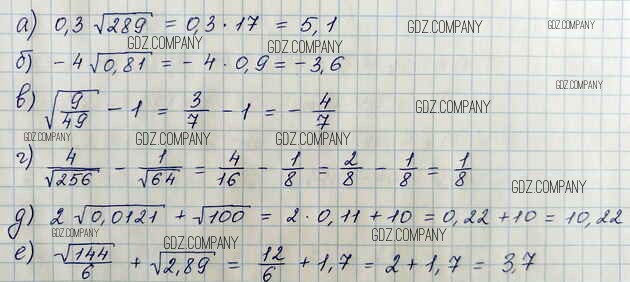 а) 0,3 √289 = 0,3 · 17 = 5,1
GDZ.COMPANY
GDZ.COMPANY
GDZ.COMPANY GDZ.COMPANY
б) -4 √0,81 = - 4 · 0,9 = -3,6
GDZ.COMPANY
в) √(9/49) - 1 = 3/7 - 1 = - 4/7
GDZ.COMPANY
GDZ.COMPANY GDZ.COMPANY GDZ.COMPANY
г) 4/√256 - 1/√64 = 4/16 - 1/8 = 2/8 - 1/8 = 1/8
GDZ.COMPANY
д) 2 √0,0121 + √100 = 2 · 0,11 + 10 = 0,22 + 10 = 10,22
GDZ.COMPANY GDZ.COMPANY GDZ.COMPANY
е) √144/6 + √2,89 = 12/6 + 1,7 = 2 + 1,7 = 3,7